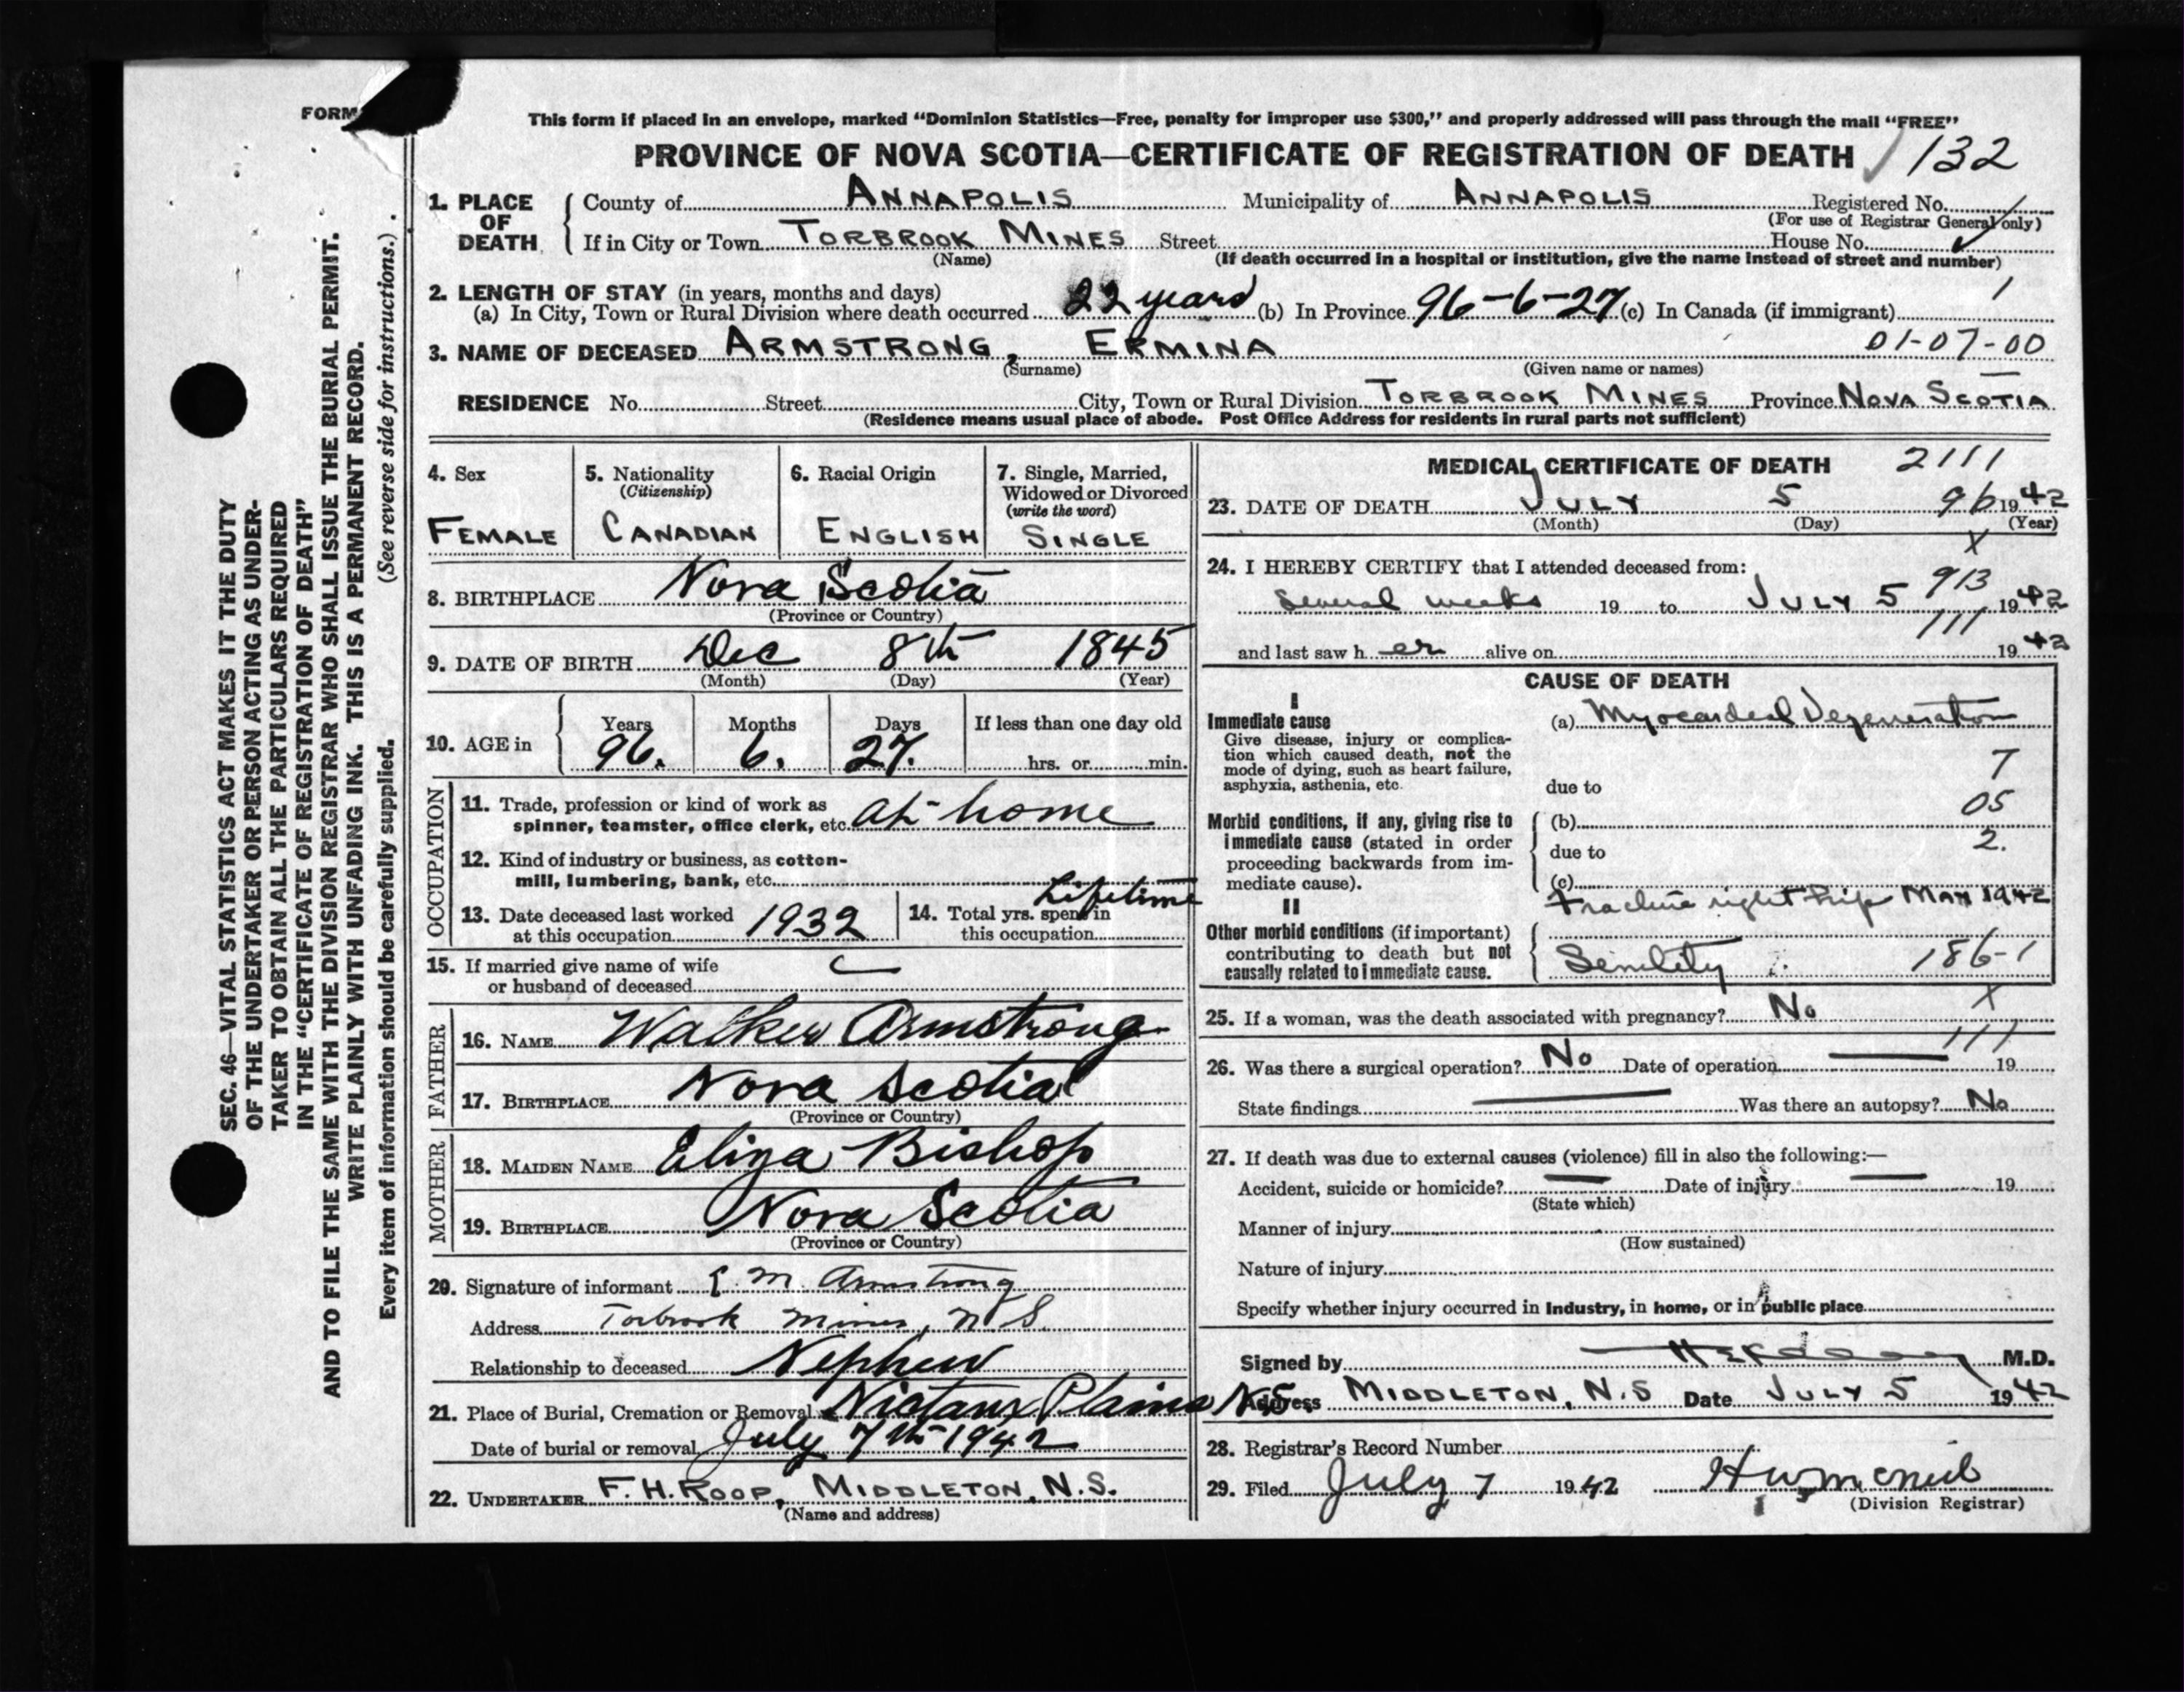 FORM
This form if placed in an envelope, marked “Dominion Statistics—Free, penalty for improper use $300,” and properly addressed will pass through the mail “FREE”
PROVINCE OF NOVA SCOTIA—CERTIFICATE OF REGISTRATION OF DEATH 132
1. PLACE OF DEATH
County of ANNAPOLIS Municipality of ANNAPOLIS Registered No.
(For use of Registrar General only)
If in City or Town TORBROOK MINES Street House No.
(Name) (If death occurred in a hospital or institution, give the name instead of street and number)
2. LENGTH OF STAY (in years, months and days)
(a) In City, Town or Rural Division where death occurred 22 years (b) In Province 96-6-27 (c) In Canada (if immigrant) 1
3. NAME OF DECEASED ARMSTRONG, ERMINA 01-07-00
(Surname) (Given name or names)
RESIDENCE No. Street City, Town or Rural Division TORBROOK MINES Province NOVA SCOTIA
(Residence means usual place of abode. Post Office Address for residents in rural parts not sufficient)
4. Sex
FEMALE
5. Nationality
(Citizenship)
CANADIAN
6. Racial Origin
ENGLISH
7. Single, Married,
Widowed or Divorced
(write the word)
SINGLE
8. BIRTHPLACE Nova Scotia
(Province or Country)
9. DATE OF BIRTH Dec 8th 1845
(Month) (Day) (Year)
10. AGE in
Years Months Days If less than one day old
96. 6. 27. hrs. or min.
OCCUPATION
11. Trade, profession or kind of work as
spinner, teamster, office clerk, etc. at-home
12. Kind of industry or business, as cotton-
mill, lumbering, bank, etc.
13. Date deceased last worked
at this occupation 1932
14. Total yrs. spent in
this occupation Lifetime
15. If married give name of wife
or husband of deceased
FATHER
16. NAME Walker Armstrong
17. BIRTHPLACE Nova Scotia
(Province or Country)
MOTHER
18. MAIDEN NAME Eliza Bishop
19. BIRTHPLACE Nova Scotia
(Province or Country)
20. Signature of informant E. M. Armstrong
Address Torbrook Mines, N S.
Relationship to deceased Nephew
21. Place of Burial, Cremation or Removal Nictaux Plains N.S.
Date of burial or removal July 7th 1942
22. UNDERTAKER F. H. ROOP, MIDDLETON, N.S.
(Name and address)
MEDICAL CERTIFICATE OF DEATH 2111
23. DATE OF DEATH JULY 5 96 1942
(Month) (Day) (Year)
X
24. I HEREBY CERTIFY that I attended deceased from:
913
Several weeks 19 to JULY 5 1942
111
and last saw her alive on 1942
CAUSE OF DEATH
I
Immediate cause
Give disease, injury or complica-
tion which caused death, not the
mode of dying, such as heart failure,
asphyxia, asthenia, etc.
(a) Myocardial Degeneration
7
due to
05
Morbid conditions, if any, giving rise to
immediate cause (stated in order
proceeding backwards from im-
mediate cause).
(b)
2.
due to
(c)
Fracture right hip MAY 1942
II
Other morbid conditions (if important)
contributing to death but not
causally related to immediate cause.
Senility 186-1
X
25. If a woman, was the death associated with pregnancy? No
111
26. Was there a surgical operation? No Date of operation 19
State findings Was there an autopsy? No
27. If death was due to external causes (violence) fill in also the following:—
Accident, suicide or homicide? Date of injury 19
(State which)
Manner of injury
(How sustained)
Nature of injury
Specify whether injury occurred in Industry, in home, or in public place
Signed by M.D.
Address MIDDLETON, N.S Date JULY 5 1942
28. Registrar's Record Number
29. Filed July 7 1942 H W McNeil
(Division Registrar)
SEC. 46—VITAL STATISTICS ACT MAKES IT THE DUTY
OF THE UNDERTAKER OR PERSON ACTING AS UNDER-
TAKER TO OBTAIN ALL THE PARTICULARS REQUIRED
IN THE “CERTIFICATE OF REGISTRATION OF DEATH”
AND TO FILE THE SAME WITH THE DIVISION REGISTRAR WHO SHALL ISSUE THE BURIAL PERMIT.
WRITE PLAINLY WITH UNFADING INK. THIS IS A PERMANENT RECORD.
Every item of information should be carefully supplied. (See reverse side for instructions.)